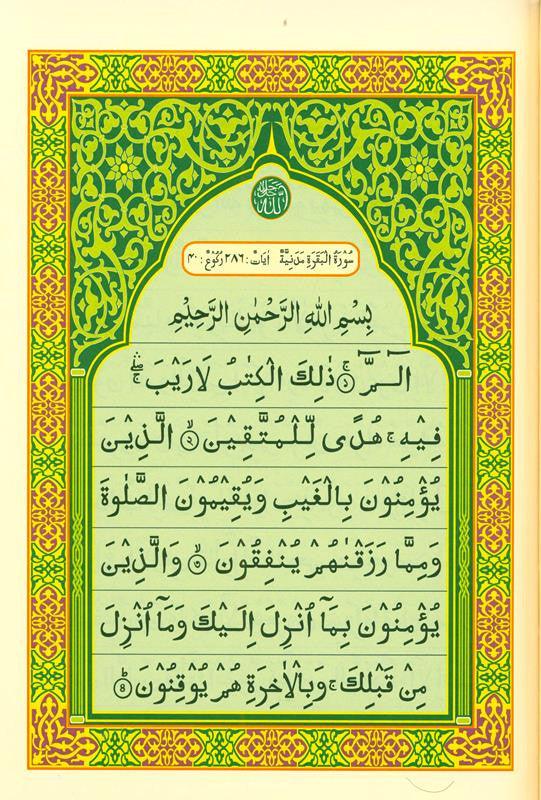 الله جل جلاله
سُوْرَةُ الْبَقَرَةِ مَدَنِيَّةٌ اٰيَاتُ: ٢٨٦ رُكُوْعُ: ٤٠
بِسْمِ اللّٰهِ الرَّحْمٰنِ الرَّحِيْمِ
الٓمّٓ ۚ ١ ذٰلِكَ الْكِتٰبُ لَا رَيْبَ ۛۖ
فِيْهِ ۚ هُدًى لِّلْمُتَّقِيْنَ ۙ ٢ الَّذِيْنَ
يُؤْمِنُوْنَ بِالْغَيْبِ وَيُقِيْمُوْنَ الصَّلٰوةَ
وَمِمَّا رَزَقْنٰهُمْ يُنْفِقُوْنَ ۙ ٣ وَالَّذِيْنَ
يُؤْمِنُوْنَ بِمَآ اُنْزِلَ اِلَيْكَ وَمَآ اُنْزِلَ
مِنْ قَبْلِكَ ۚ وَبِالْاٰخِرَةِ هُمْ يُوْقِنُوْنَ ؕ ٤